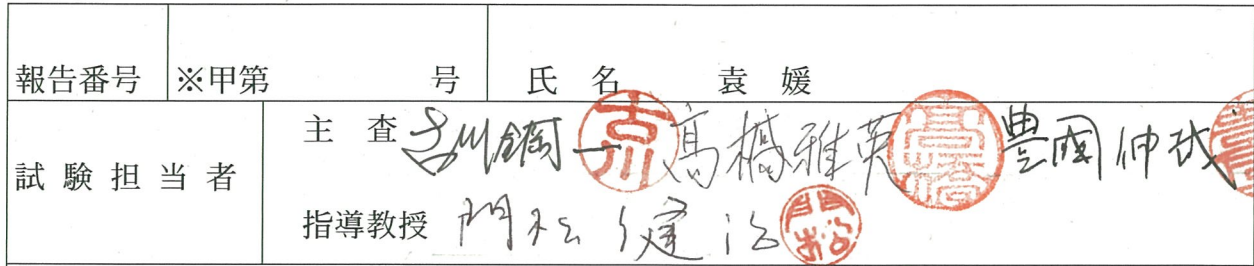 報告番号 ※甲第 号 氏名 袁媛
試験担当者 主査 古川鋼一 古川 髙橋雅英 髙橋 豊國伸哉
指導教授 門松健治 門松